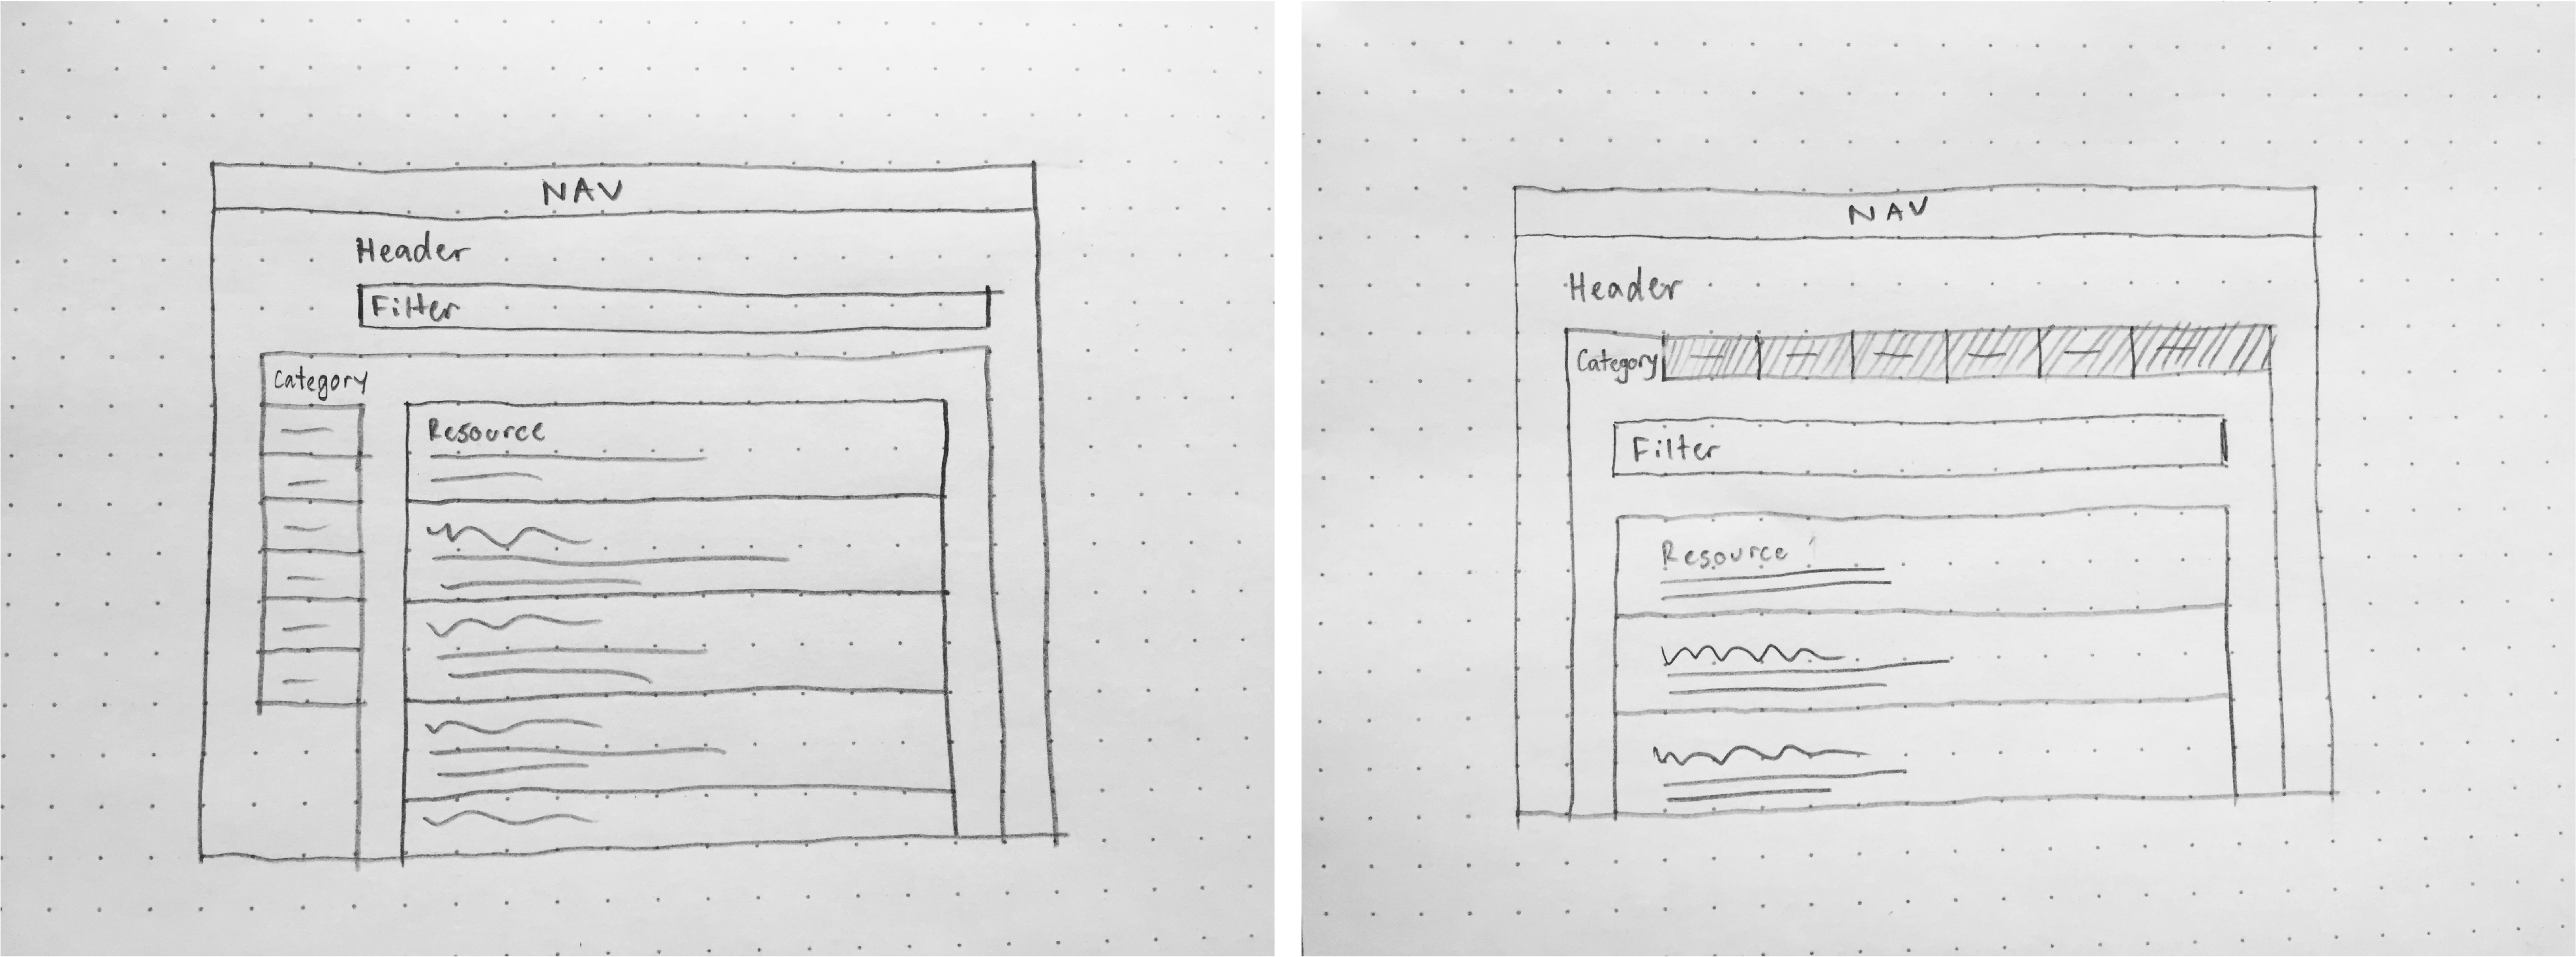 NAV
Header
Filter
Category
Resource
NAV
Header
Category
Filter
Resource